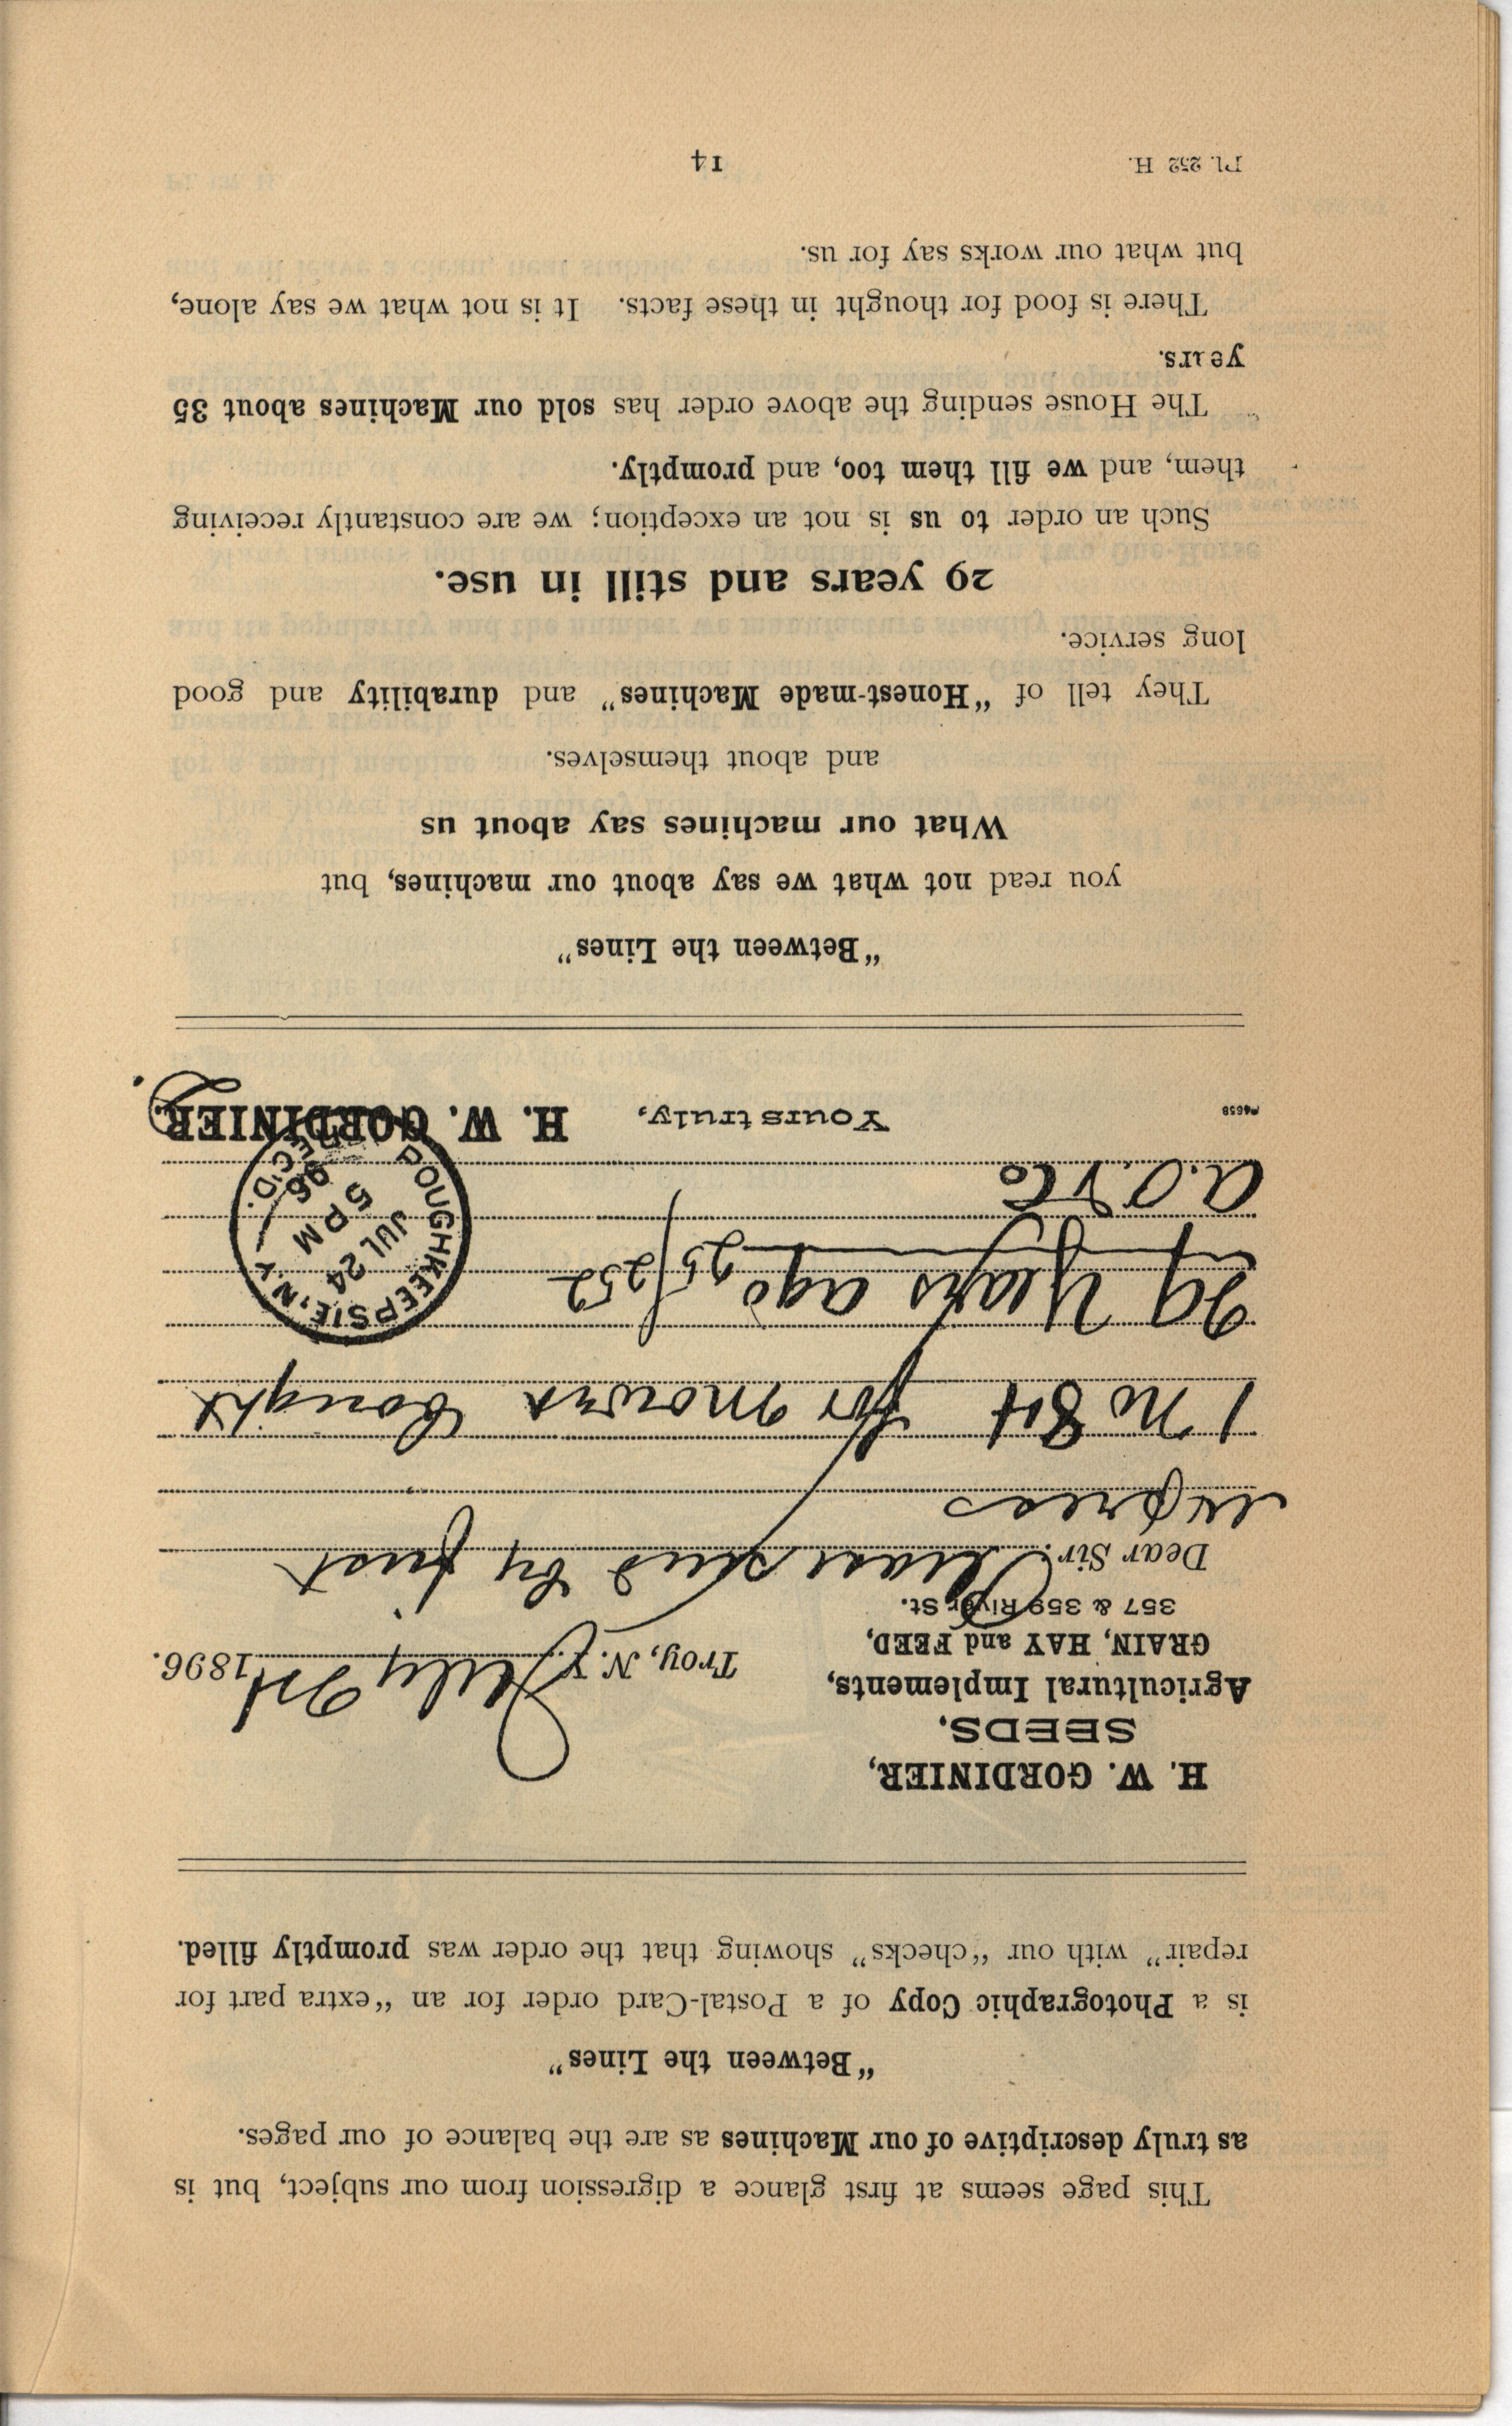 This page seems at first glance a digression from our subject, but is
as truly descriptive of our Machines as are the balance of our pages.
“Between the Lines”
is a Photographic Copy of a Postal-Card order for an “extra part for
repair” with our “checks” showing that the order was promptly filled.
H. W. GORDINIER,
SEEDS.
Agricultural Implements,
GRAIN, HAY and FEED,
357 & 359 River St.
Troy, N. Y. July 24 1896.
Dear Sir: Please send by first
express
1 No 84 for mower bought
29 Years ago 25/252
a.O. & Co
POUGHKEEPSIE, N.Y.
JUL 24
5 PM
96
REC'D.
Yours truly, H. W. GORDINIER.
“Between the Lines”
you read not what we say about our machines, but
What our machines say about us
and about themselves.
They tell of “Honest-made Machines” and durability and good
long service.
29 years and still in use.
Such an order to us is not an exception; we are constantly receiving
them, and we fill them too, and promptly.
The House sending the above order has sold our Machines about 35
years.
There is food for thought in these facts. It is not what we say alone,
but what our works say for us.
Pl. 252 H.
14